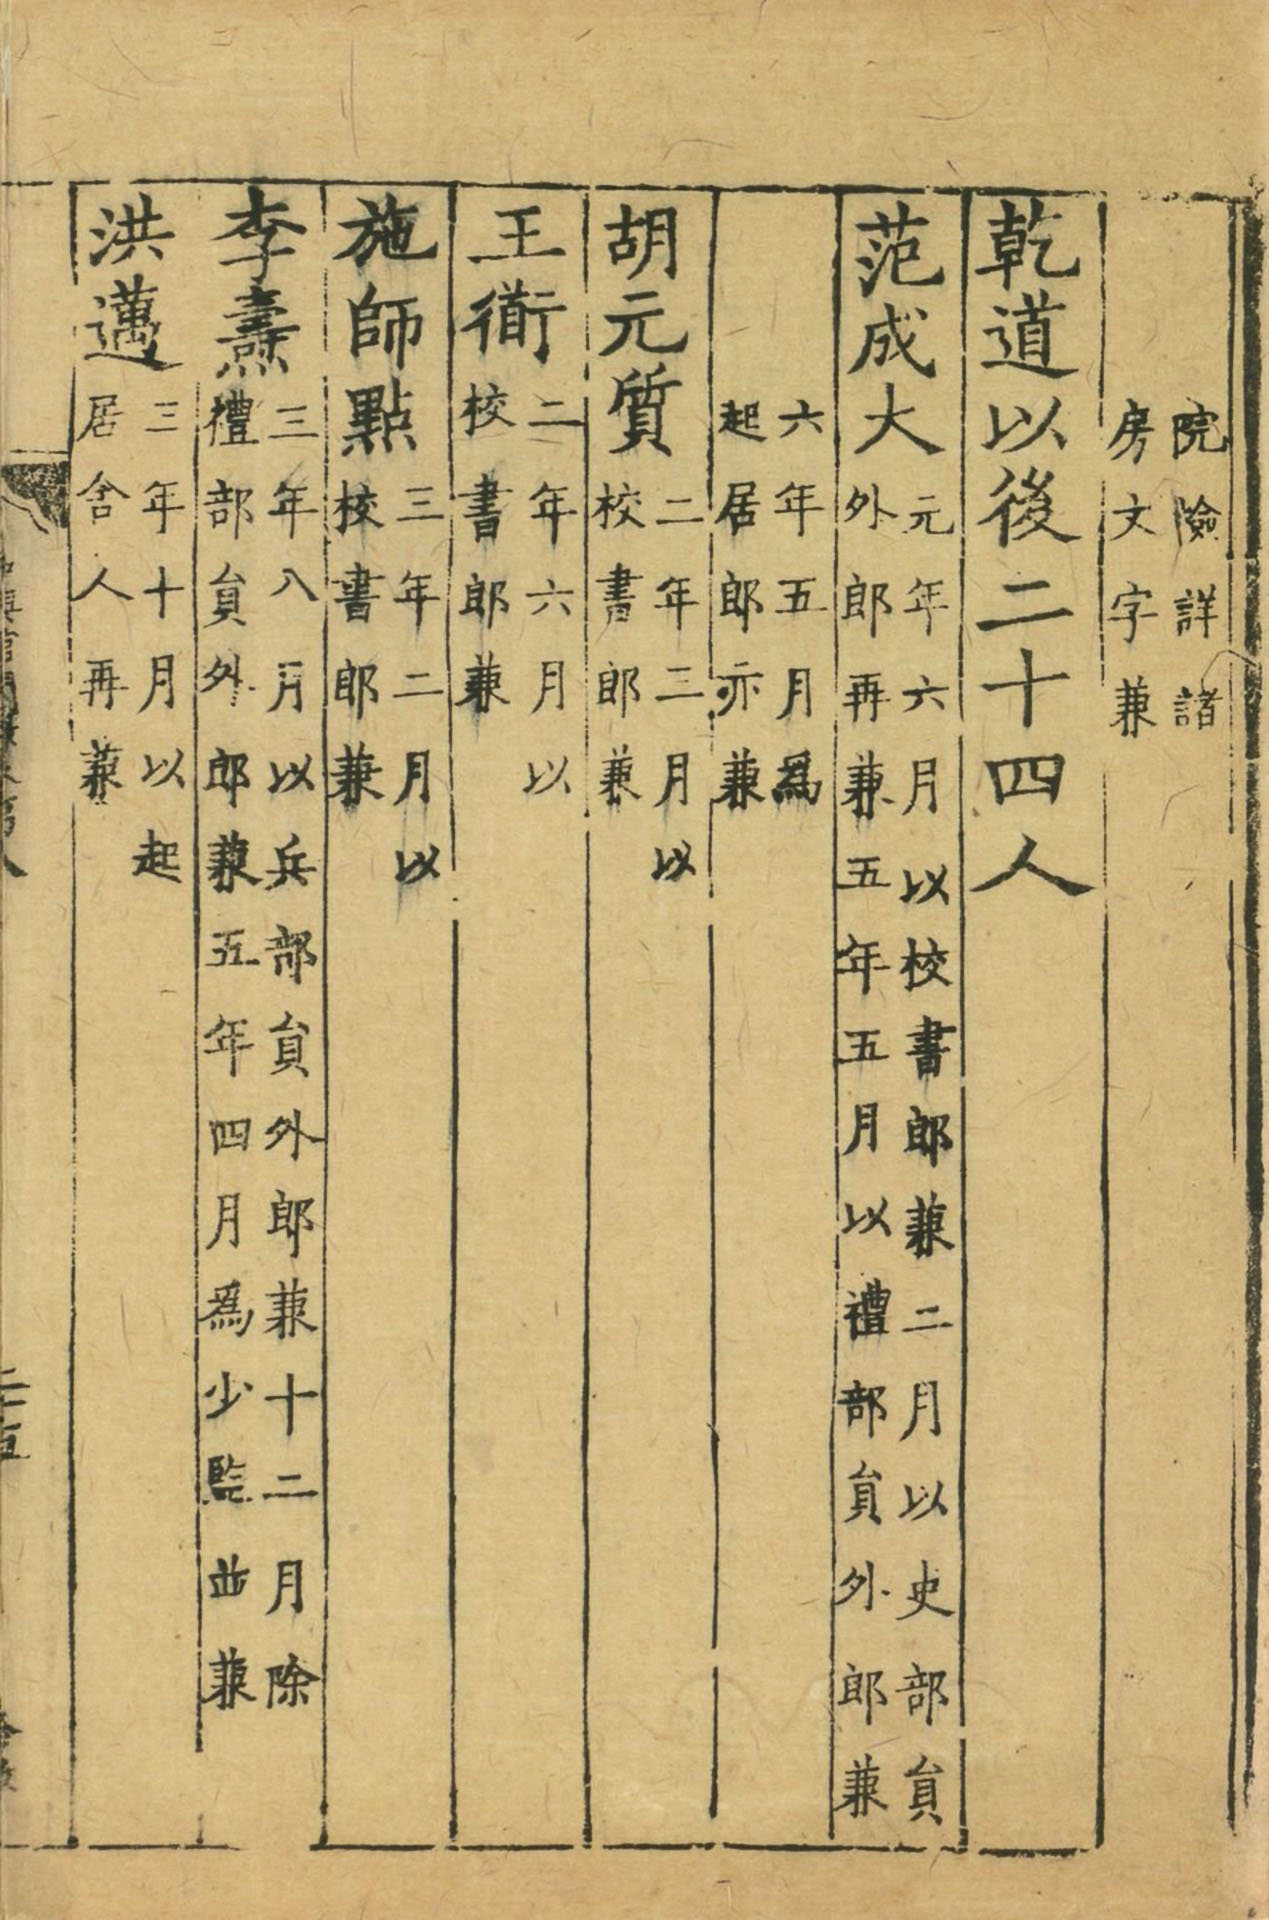 院險詳諸
房文字兼
乾道以後二十四人
范成大元年六月以校書郎兼二月以史部貟
外郎再兼五年五月以禮部貟外郎兼
六年五月爲
起居郎亦兼
胡元質二年三月以
校書郎兼
王衜二年六月以
校書郎兼
施師點三年二月以
校書郎兼
李燾三年八月以兵部貟外郎兼十二月除
禮部貟外郎兼五年四月爲少監並兼
洪邁三年十月以起
居舍人再兼
二十五